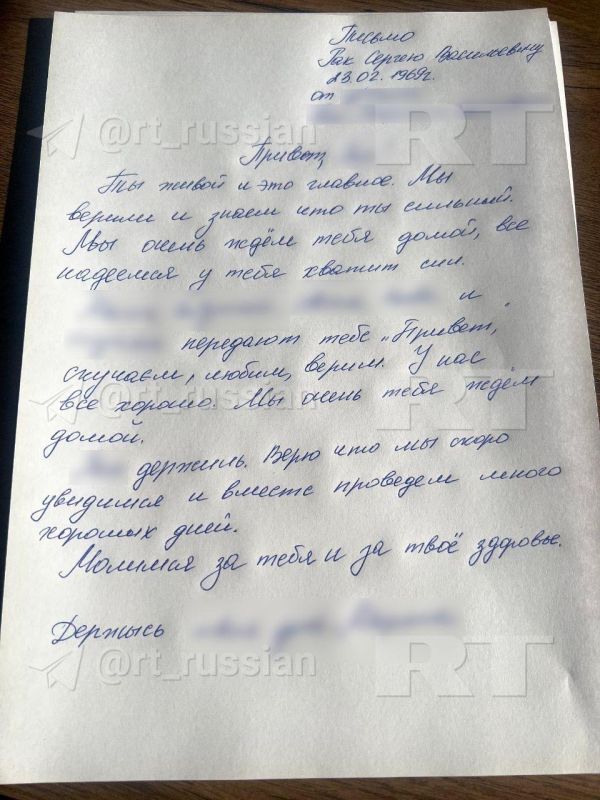 Письмо
Рак Сергею Васильевичу
23.02.1969г.
от
@rt_russian
RT
Привет,
Ты живой и это главное. Мы
верили и знаем что ты сильный.
Мы очень ждём тебя домой, все
надеемся у тебя хватит сил.
и
передают тебе „Привет,"
скучаем, любим, верим. У нас
все хорошо. Мы очень тебя ждём
@rt_russian
RT
домой.
держись. Верю что мы скоро
увидимся и вместе проведем много
хороших дней.
Молимся за тебя и за твоё здоровье.
Держысь
@rt_russian
RT